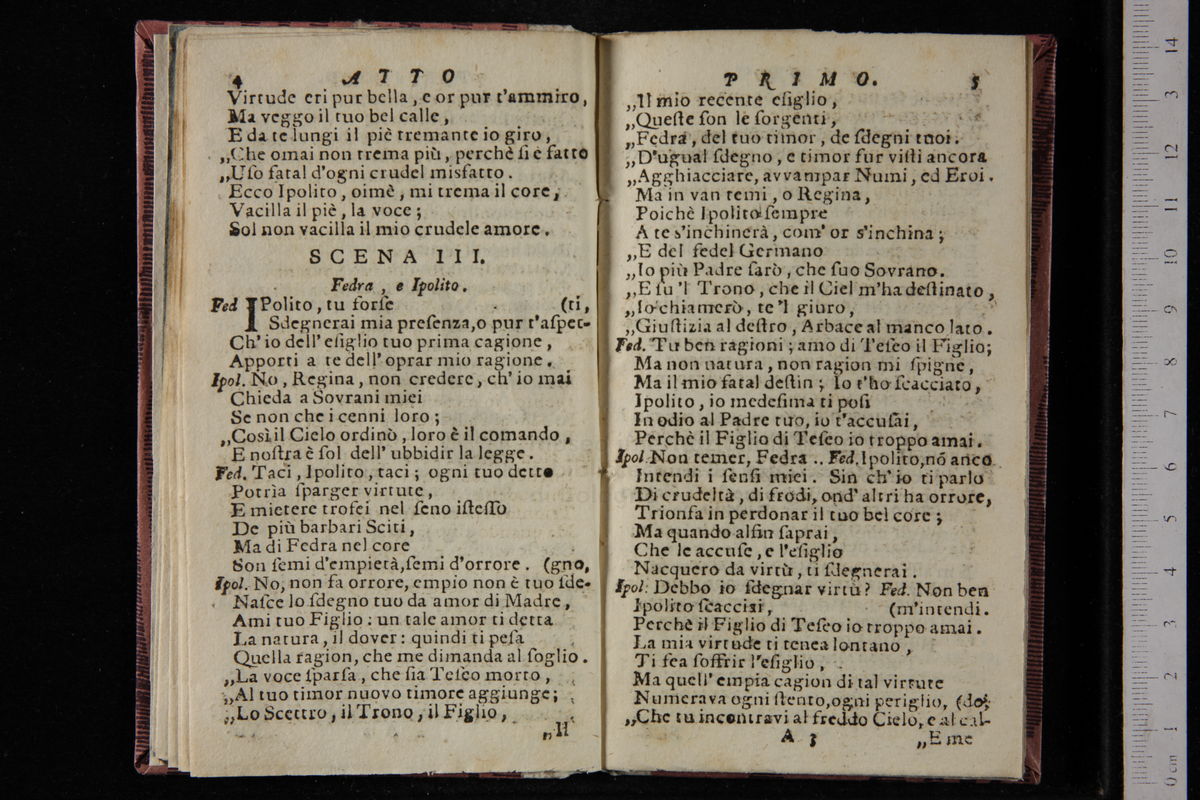 4 ATTO
Virtude eri pur bella, e or pur t'ammiro,
Ma veggo il tuo bel calle,
E da te lungi il piè tremante io giro,
„Che omai non trema più, perchè si è fatto
„Uſo fatal d'ogni crudel misfatto.
Ecco Ipolito, oimè, mi trema il core,
Vacilla il piè, la voce;
Sol non vacilla il mio crudele amore.
SCENA III.
Fedra, e Ipolito.
Fed IPolito, tu forſe (ti,
Sdegnerai mia preſenza, o pur t'aſpet-
Ch' io dell' eſiglio tuo prima cagione,
Apporti a te dell' oprar mio ragione.
Ipol. No, Regina, non credere, ch' io mai
Chieda a Sovrani miei
Se non che i cenni loro;
„Così il Cielo ordinò, loro è il comando,
E noſtra è ſol dell' ubbidir la legge.
Fed. Taci, Ipolito, taci; ogni tuo detto
Potrìa ſparger virtute,
E mietere trofei nel ſeno iſteſſo
De più barbari Sciti,
Ma di Fedra nel core
Son ſemi d'empietà, ſemi d'orrore. (gno,
Ipol. No, non fa orrore, empio non è tuo ſde-
Naſce lo ſdegno tuo da amor di Madre,
Ami tuo Figlio: un tale amor ti detta
La natura, il dover: quindi ti peſa
Quella ragion, che me dimanda al ſoglio.
„La voce ſparſa, che ſia Teſeo morto,
„Al tuo timor nuovo timore aggiunge;
„Lo Scettro, il Trono, il Figlio,
„Il
PRIMO. 5
„Il mio recente eſiglio,
„Queſte ſon le ſorgenti,
„Fedra, del tuo timor, de ſdegni tuoi.
„D'ugual ſdegno, e timor fur viſti ancora
„Agghiacciare, avvampar Numi, ed Eroi.
Ma in van temi, o Regina,
Poichè Ipolito ſempre
A te s'inchinerà, com' or s'inchina;
„E del fedel Germano
„Io più Padre ſarò, che ſuo Sovrano.
„E ſu 'l Trono, che il Ciel m'ha deſtinato,
„Io chiamerò, te 'l giuro,
„Giuſtizia al deſtro, Arbace al manco lato.
Fed. Tu ben ragioni; amo di Teſeo il Figlio;
Ma non natura, non ragion mi ſpigne,
Ma il mio fatal deſtin; Io t'ho ſcacciato,
Ipolito, io medeſima ti poſi
In odio al Padre tuo, io t'accuſai,
Perchè il Figlio di Teſeo io troppo amai.
Ipol. Non temer, Fedra .. Fed. Ipolito, nō anco
Intendi i ſenſi miei. Sin ch' io ti parlo
Di crudeltà, di frodi, ond' altri ha orrore,
Trionfa in perdonar il tuo bel core;
Ma quando alfin ſaprai,
Che le accuſe, e l'eſiglio
Nacquero da virtù, ti ſdegnerai.
Ipol: Debbo io ſdegnar virtù? Fed. Non ben
Ipolito ſcacciai, (m'intendi.
Perchè il Figlio di Teſeo io troppo amai.
La mia virtude ti tenea lontano,
Ti fea ſoffrir l'eſiglio,
Ma quell' empia cagion di tal virtute
Numerava ogni ſtento, ogni periglio, (do;
„Che tu incontravi al freddo Cielo, e al cal-
A 3 „E me
0 cm 1 2 3 4 5 6 7 8 9 10 11 12 3 14